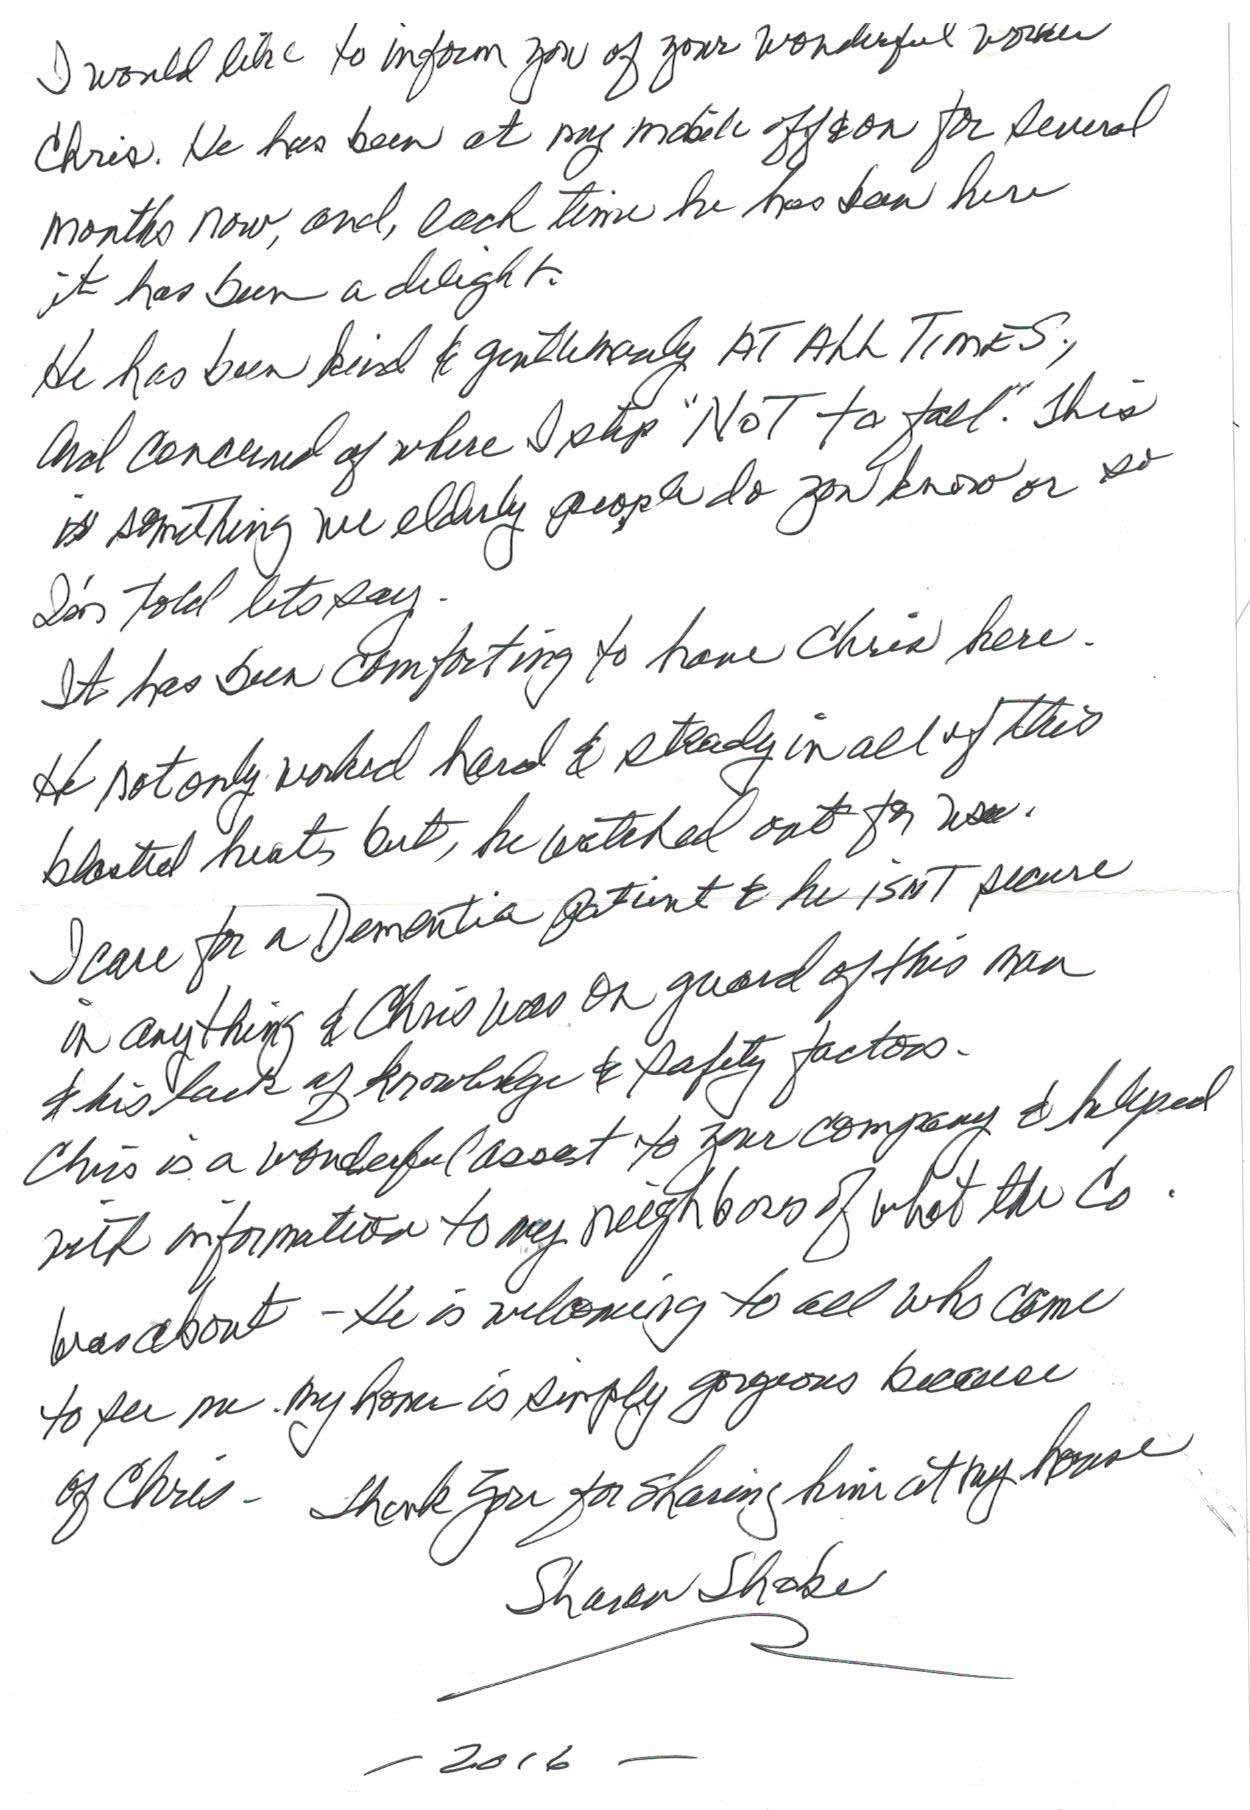 I would like to inform you of your wonderful worker
Chris. He has been at my mobile off & on for several
months now, and, each time he has been here
it has been a delight.
He has been kind & gentlemanly AT ALL TIMES,
and concerned of where I step "NOT to fall". This
is something we elderly people do you know or so
I'm told lets say.
It has been comforting to have Chris here.
He not only worked hard & steady in all of this
blasted heat, but, he watched out for us.
I care for a Dementia patient & he isnt secure
in anything & Chris was on guard of this man
& his lack of knowledge & safety factors.
Chris is a wonderful asset to your company & helped
with information to my neighbors of what the Co.
was about - He is welcoming to all who come
to see me. My home is simply gorgeous because
of Chris - Thank you for sharing him at my house
Sharon
- 2016 -